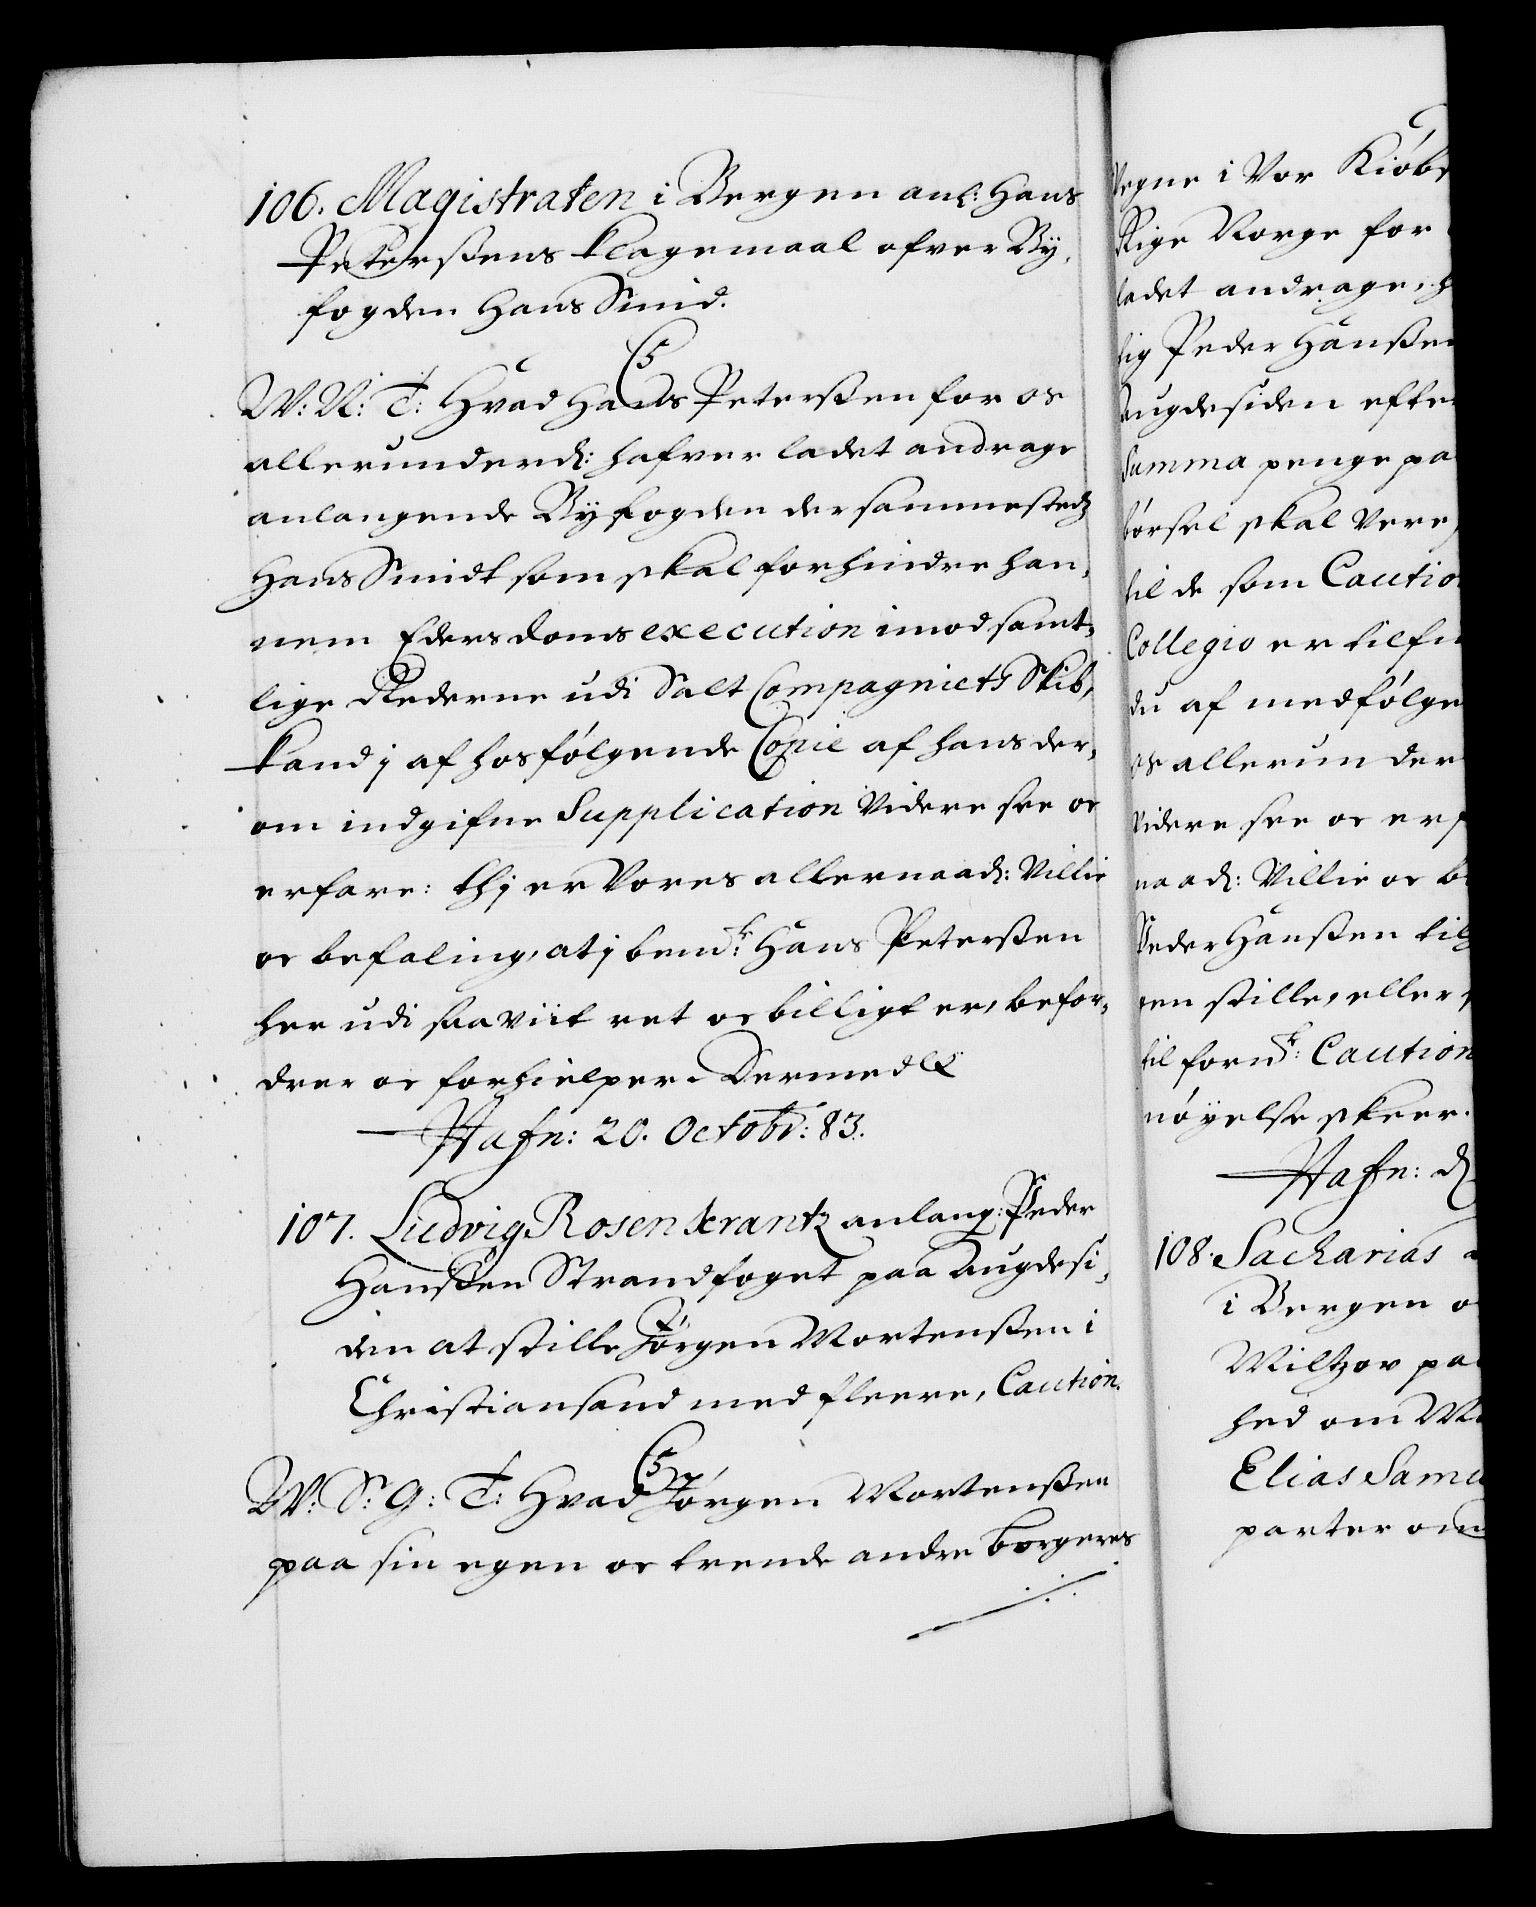 106. Magistraten i Bergen anl: Hans
Peterßens klagemaal ofver By,
fogden Hans Smid.
C5
W: U: T: Hvad Hans Peterßen for os
allerunderd: hafver ladet andrage
anlangende Byfogden dersammestedz
Hans Smidt som skal forhindre han,
nem Eders doms execution imod samt,
lige Rederne udi Salt Compagniets Skib,
kand j af hosfølgende Copie af hans der,
om indgifne Supplication Videre see oc
erfare: thj er Vores allernaad: Villie
oc befaling, at j bemt: Hans Peterßen
her udi saaviit ret oc billigt er, befor,
drer oc forhielper. Dermed &
Hafn: 20. Octobr: 83.
107. Ludvig Rosenkrantz anlang: Peder
Hanßen Strandfoget paa Augdesi,
den at stille Jørgen Mortenßen i
Christiansand med fleere, Caution.
C5
W: Sr: G: T: Hvad Jørgen Mortenßen
paa sin egen oc trende andre borgeres
Vegne i Vor Kiøbs
Rige Norge for
ladet andrage, h
lig Peder Hanßen
Augdesiden efter
Summa penge pa
børsel skal Vere,
til de som Cautio
Collegio er tilfu
du af medfølge
os allerunder
Videre see oc erf
naad: Villie oc be
Peder Hanßen tilh
gen stille, eller
til fornt: Caution
nøyelse skeer.
Hafn: d
108. Sacharias a
i Bergen o
Miltzov paa
hed om M
Elias Samu
parter om